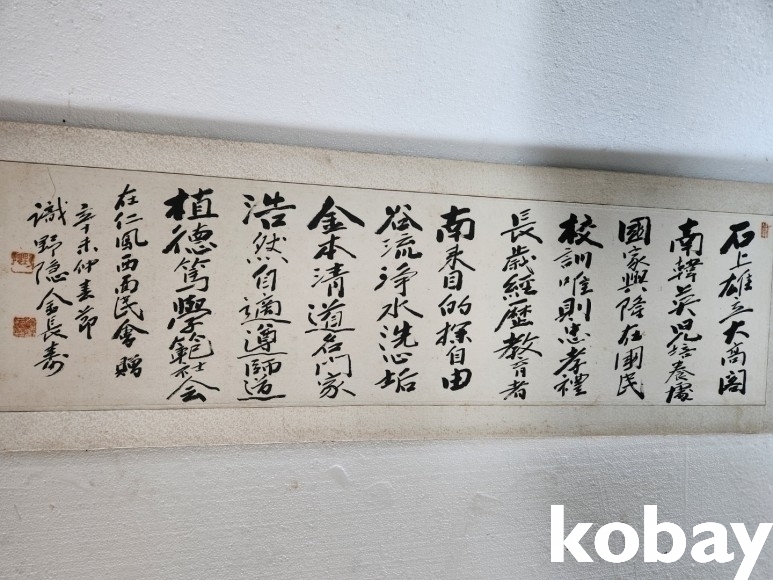 石上雄立大高閣
南韓英児培養處
國家興隆在國民
校訓唯則忠孝禮
長歲經歷教育者
南來目的探自由
谷流淨水洗心垢
金本清道名門家
浩然自適遵師道
植德篤學範社会
在仁風西面民會贈
辛未仲春節
識野隱金長壽
kobay